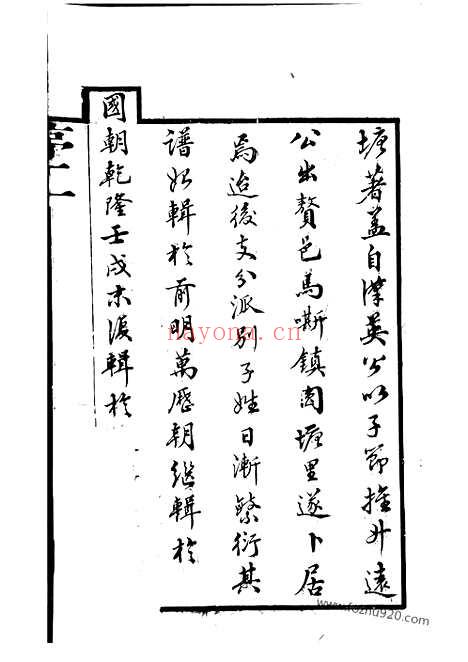 塘著蓋自漢英公以子節推升遠
公出贅邑馬嘶鎮閔塘里遂卜居
焉迨後支分派別子姓日漸繁衍其
譜始輯於前明萬歷朝繼輯於
國朝乾隆壬戌末復輯於
nayona.cn
www.fozhu920.com